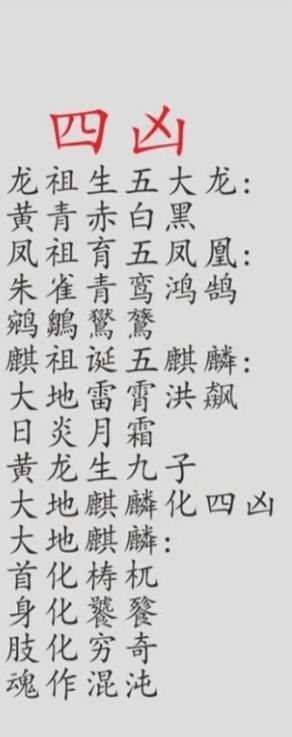 四凶
龙祖生五大龙：
黄青赤白黑
凤祖育五凤凰：
朱雀青鸾鸿鹄
鹓鶵鸑鷟
麒祖诞五麒麟：
大地雷霄洪飙
日炎月霜
黄龙生九子
大地麒麟化四凶
大地麒麟：
首化梼杌
身化饕餮
肢化穷奇
魂作混沌